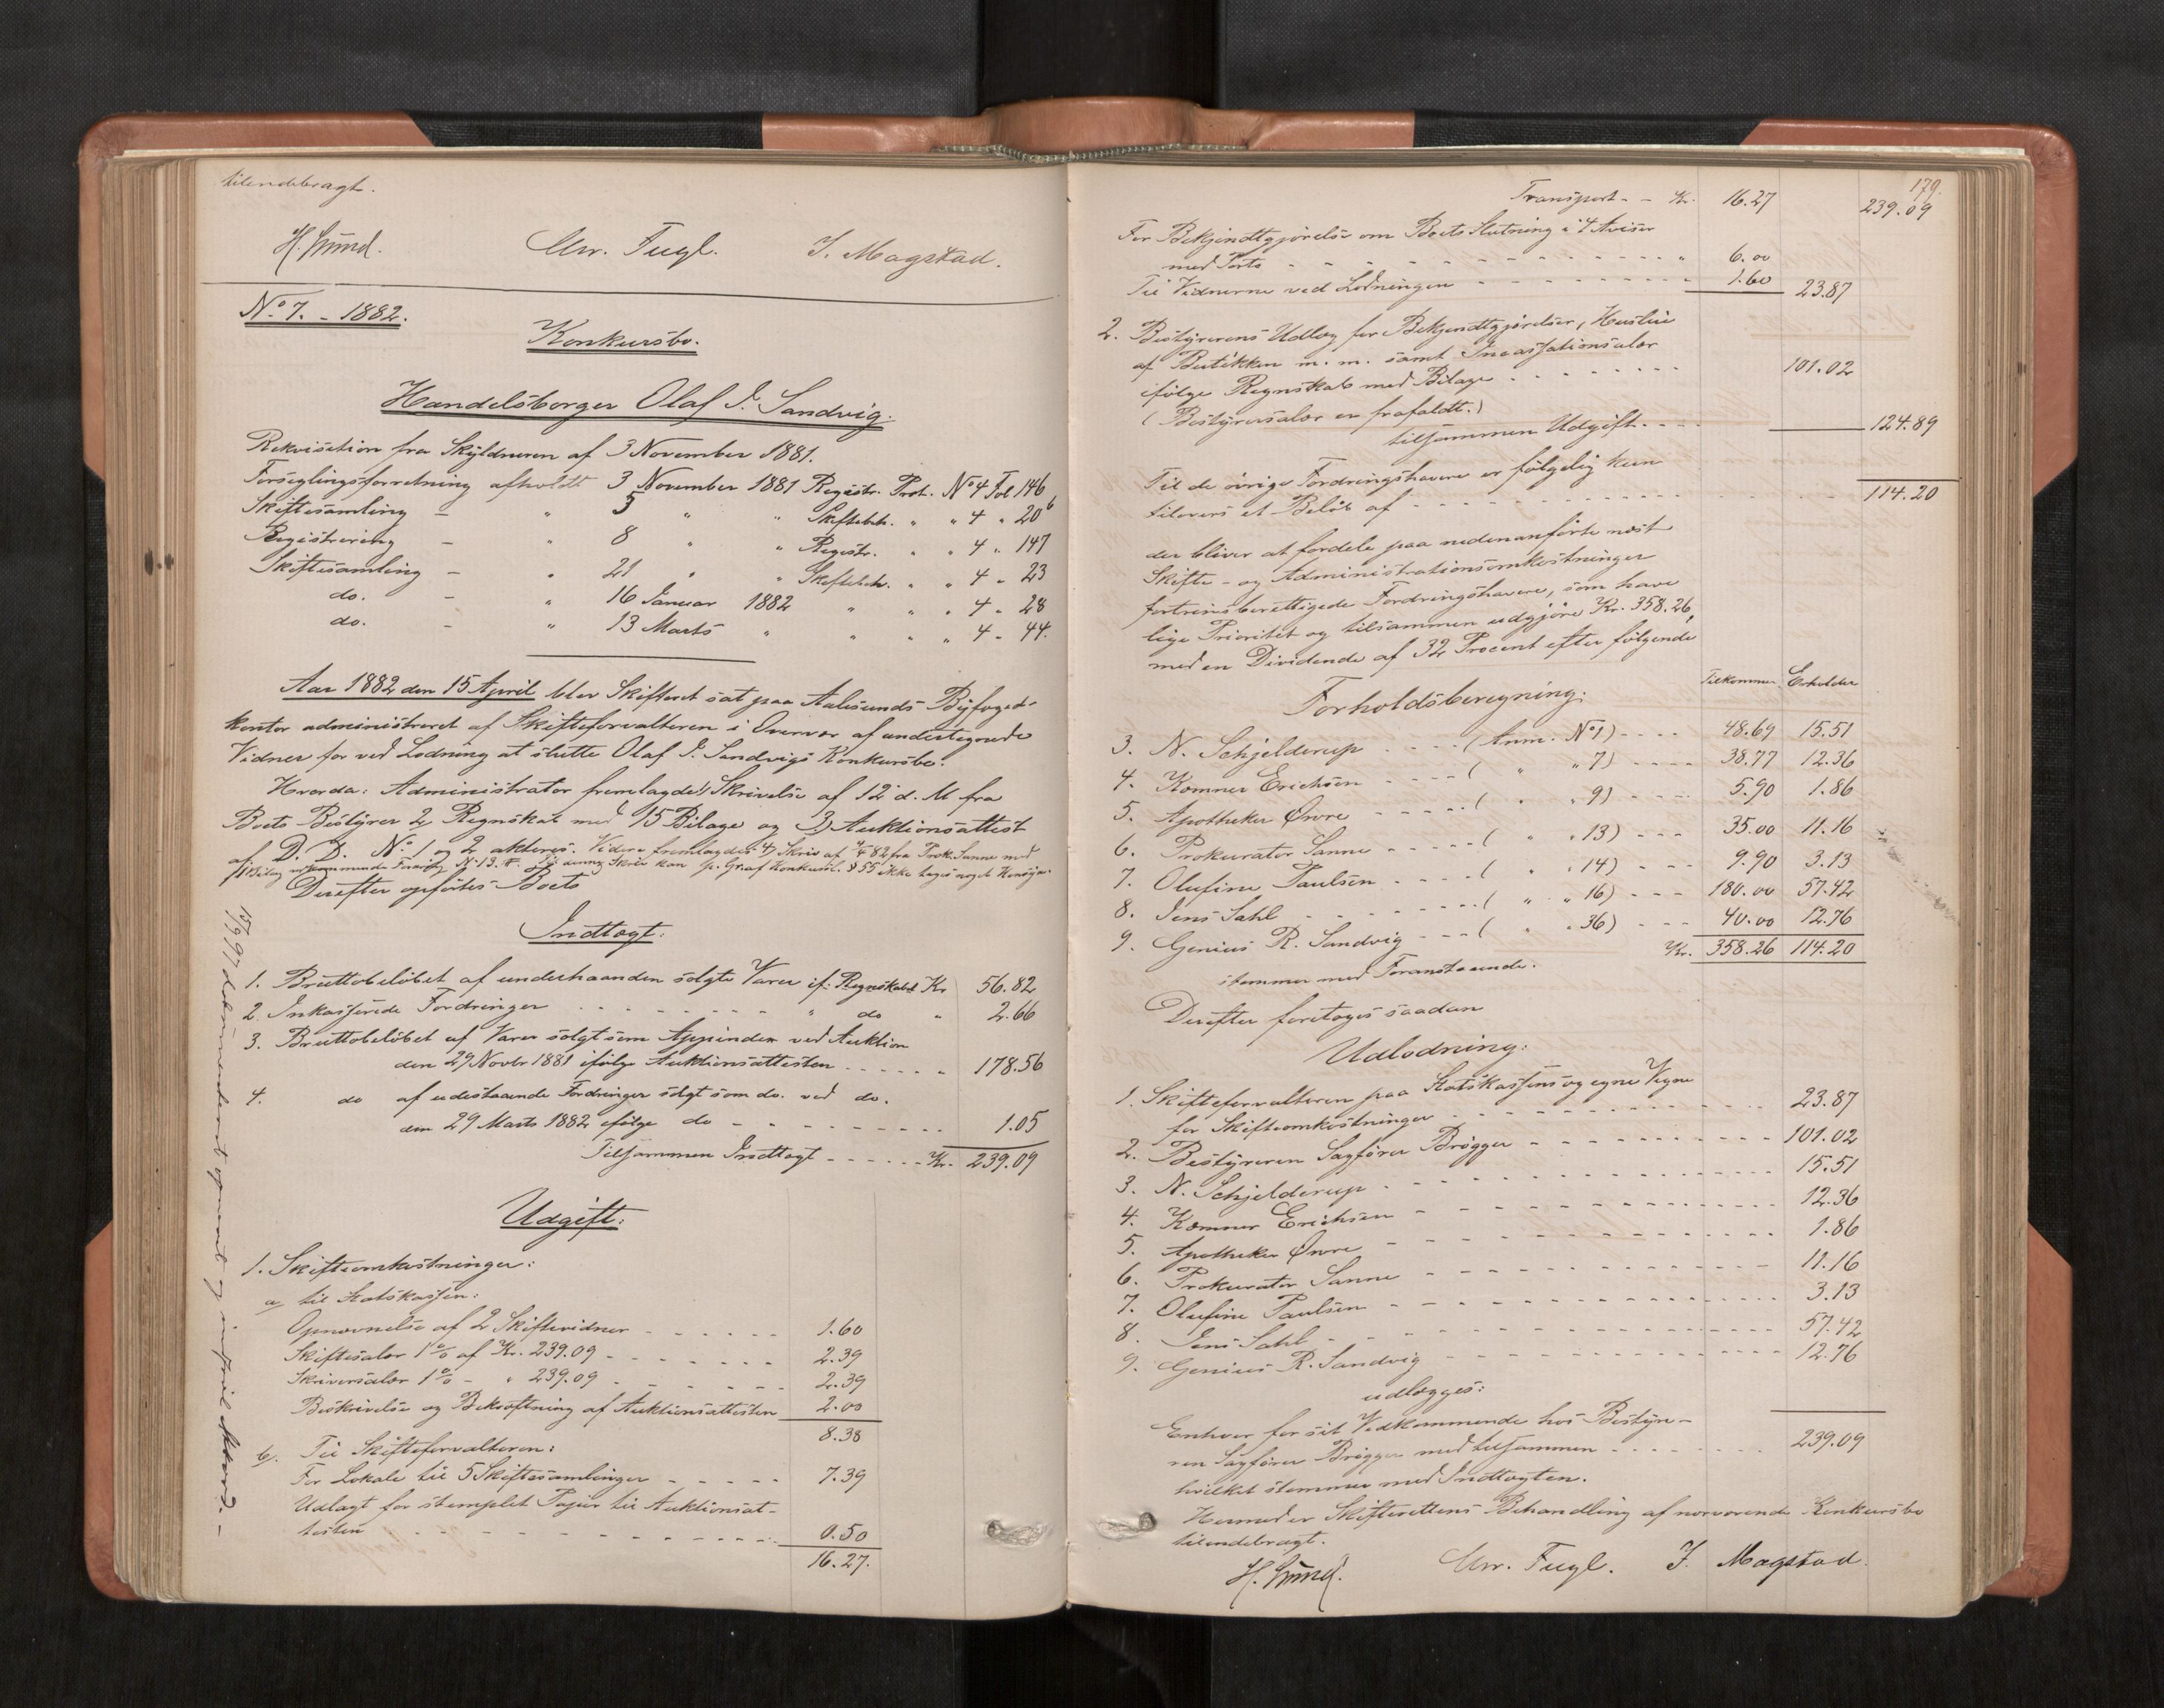 tilendebragt.
H. Grund. Chr. Fugl. J. Magstad.
No 7. - 1882.
Konkursbo.
Handelsborger Olaf J. Sandvig.
Rekvisition fra Skyldneren af 3 November 1881.
Forseglingsforretning afholdt 3 November 1881 Registr. Prot. No 4 Fol 146
Skiftesamling - " 5 " " Skiftebeh. " " 4 " 20 b
Registrering - " 8 " " Registr. " " 4 " 147
Skiftesamling - " 21 " " Skiftebeh. " " 4 " 23
do. - " 16 Januar 1882 " " " 4 " 28
do. - " 13 Marts " " " " 4 - 44.
Aar 1882 den 15 April blev Skifteret sat paa Aalesunds Byfoged-
kontor administreret af Skifteforvalteren i Overvær af undertegnede
Vidner for ved Lodning at slutte Olaf J. Sandvigs Konkursbo.
Hvorda: Administrator fremlagde 1) Skrivelse af 12 d. M fra
Boets Bestyrer 2) Regnskab med 15 Bilage og 3) Auktionsattest
af D. D. No 1 og 2 akteres. Videre fremlagdes 4) Skriv af 4/4 82 fra Prok. Sanne med
1 Bilag vedkommende Fordring No 13. Til denne Skriv kan ikke tages noget Hensyn.
Derefter opførtes Boets
Indtægt:
1. Bruttobeløbet af underhaanden solgte Varer if. Regnskabet Kr 56.82
2. Inkasserede Fordringer - - - " do " 2.66
3. Bruttobeløbet af Varer solgt som Appendix ved Auktion
den 29 Novbr 1881 ifølge Auktionsattesten - - - " 178.56
4. do af udestaaende Fordringer solgt som do. ved do.
den 29 Marts 1882 ifølge do - - - 1.05
Tilsammen Indtægt - - - Kr. 239.09
Udgift:
1. Skifteomkostninger:
a, til Statskassen:
Opnævnelse af 2 Skiftevidner - - - 1.60
Skiftesalær 1 % af Kr. 239.09 - - - 2.39
Skriversalær 1 % - " 239.09 - - - 2.39
Beskrivelse og Bekræftning af Auktionsattesten 2.00
8.38
b, Til Skifteforvalteren:
For Lokale til 5 Skiftesamlinger - - - 7.39
Udlagt for stemplet Papir til Auktionsat-
testen - - - 0.50
16.27.
15/9 97 dokumenterne
179.
Transport - - Kr. 16.27 239.09
For Bekjendtgjørelse om Boets Slutning i 4 Aviser
med Porto - - - " 6.00
Til Vidnerne ved Lodningen - - - 1.60 23.87
2. Bestyrerens Udlæg for Bekjendtgjørelser, Husleie
af Butikken m. m. samt Incassationsalær
ifølge Regnskab med Bilage - - - 101.02
(Bestyrersalær er frafaldt.)
tilsammen Udgift - - - 124.89
Til de øvrige Fordringshavere er følgelig kun
tilovers et Beløb af - - - 114.20
der bliver at fordele paa nedenanførte næst
Skifte- og Administrationsomkostninger
fortrinsberettigede Fordringshavere, som have
lige Prioritet og tilsammen udgjøre Kr. 358.26,
med en Dividende af 32 Procent efter følgende
Forholdsberegning: Tilkommer Erholder
3. N. Schjelderup - - - (Anm. No 1) - - - 48.69 15.51
4. Kæmner Erichsen - - - ( " " 7) - - - 38.77 12.36
5. Apotheker Øvre - - - ( " " 9) - - - 5.90 1.86
6. Prokurator Sanne - - - ( " " 13) - - - 35.00 11.16
7. Olufine Paulsen - - - ( " " 14) - - - 9.90 3.13
8. Jens Dahl - - - ( " " 16) - - - 180.00 57.42
9. Genius R. Sandvig - - - ( " " 36) - - - 40.00 12.76
Kr. 358.26 114.20
stemmer med Foranstaaende.
Derefter foretoges saadan
Udlodning:
1. Skifteforvalteren paa Statskassens og egne Vegne
for Skifteomkostninger - - - 23.87
2. Bestyreren Sagfører Brøgger - - - 101.02
3. N. Schjelderup - - - 15.51
4. Kæmner Erichsen - - - 12.36
5. Apotheker Øvre - - - 1.86
6. Prokurator Sanne - - - 11.16
7. Olufine Paulsen - - - 3.13
8. Jens Dahl - - - 57.42
9. Genius R. Sandvig - - - 12.76
udlægges:
Enhver for sit Vedkommende hos Bestyre-
ren Sagfører Brøgger med tilsammen - - - 239.09
hvilket stemmer med Indtægten.
Hermed er Skifterettens Behandling af nærværende Konkursbo
tilendebragt.
H. Grund. Chr. Fugl. J. Magstad.